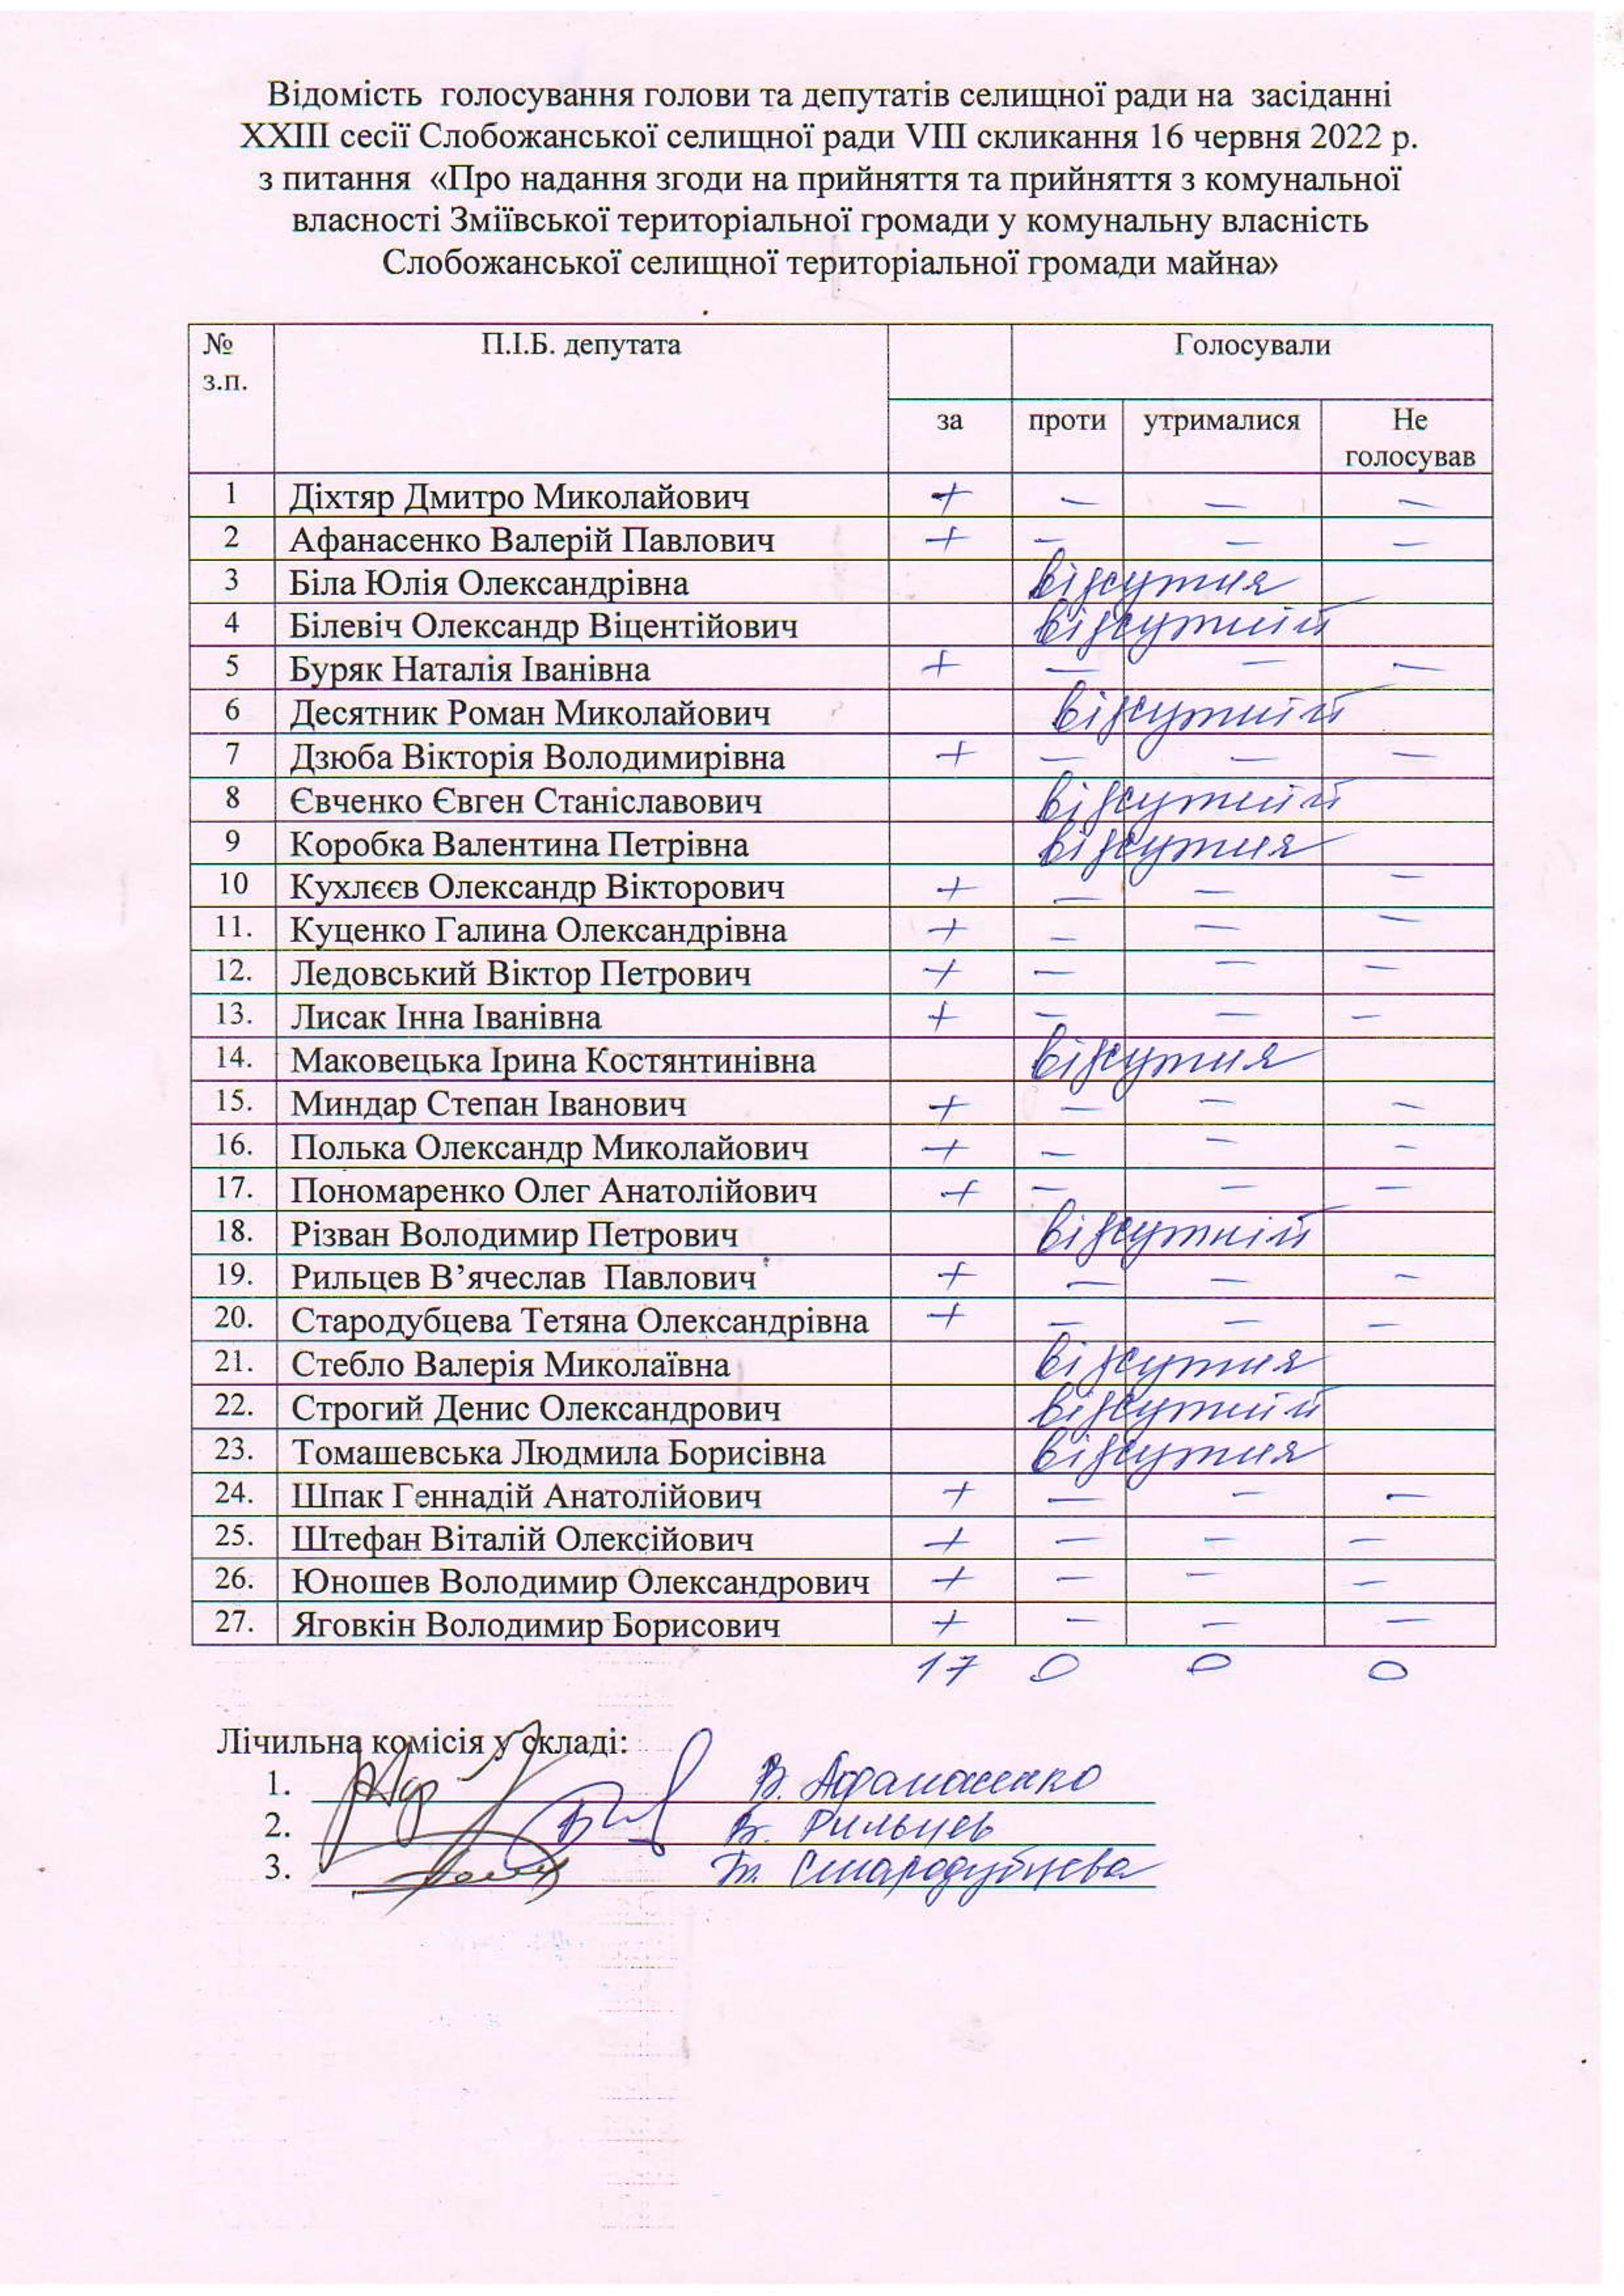 Відомість голосування голови та депутатів селищної ради на засіданні
XXIII сесії Слобожанської селищної ради VIII скликання 16 червня 2022 р.
з питання «Про надання згоди на прийняття та прийняття з комунальної
власності Зміївської територіальної громади у комунальну власність
Слобожанської селищної територіальної громади майна»
№ з.п. П.І.Б. депутата Голосували
за проти утрималися Не голосував
1 Діхтяр Дмитро Миколайович + — — —
2 Афанасенко Валерій Павлович + — — —
3 Біла Юлія Олександрівна відсутня
4 Білевіч Олександр Віцентійович відсутній
5 Буряк Наталія Іванівна + — — —
6 Десятник Роман Миколайович відсутній
7 Дзюба Вікторія Володимирівна + — — —
8 Євченко Євген Станіславович відсутній
9 Коробка Валентина Петрівна відсутня
10 Кухлєєв Олександр Вікторович + — — —
11. Куценко Галина Олександрівна + — — —
12. Ледовський Віктор Петрович + — — —
13. Лисак Інна Іванівна + — — —
14. Маковецька Ірина Костянтинівна відсутня
15. Миндар Степан Іванович + — — —
16. Полька Олександр Миколайович + — — —
17. Пономаренко Олег Анатолійович + — — —
18. Різван Володимир Петрович відсутній
19. Рильцев В’ячеслав Павлович + — — —
20. Стародубцева Тетяна Олександрівна + — — —
21. Стебло Валерія Миколаївна відсутня
22. Строгий Денис Олександрович відсутній
23. Томашевська Людмила Борисівна відсутня
24. Шпак Геннадій Анатолійович + — — —
25. Штефан Віталій Олексійович + — — —
26. Юношев Володимир Олександрович + — — —
27. Яговкін Володимир Борисович + — — —
17 0 0 0
Лічильна комісія у складі:
1. В. Афанасенко
2. В. Рильцев
3. Т. Стародубцева